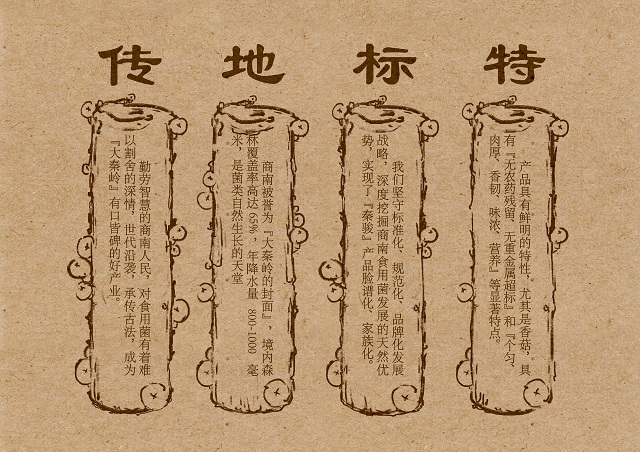 特
产品具有鲜明的特性，尤其是香菇，具
有『无农药残留、无重金属超标』和『个匀、
肉厚、香韧、味浓、营养』等显著特点。
标
我们坚守标准化、规范化、品牌化发展
战略，深度挖掘商南食用菌发展的天然优
势，实现了『秦骏』产品脸谱化、家族化。
地
商南被誉为『大秦岭的封面』，境内森
林覆盖率高达65%，年降水量 800-1000 毫
米，是菌类自然生长的天堂
传
勤劳智慧的商南人民，对食用菌有着难
以割舍的深情，世代沿袭，承传古法，成为
『大秦岭』有口皆碑的好产业。